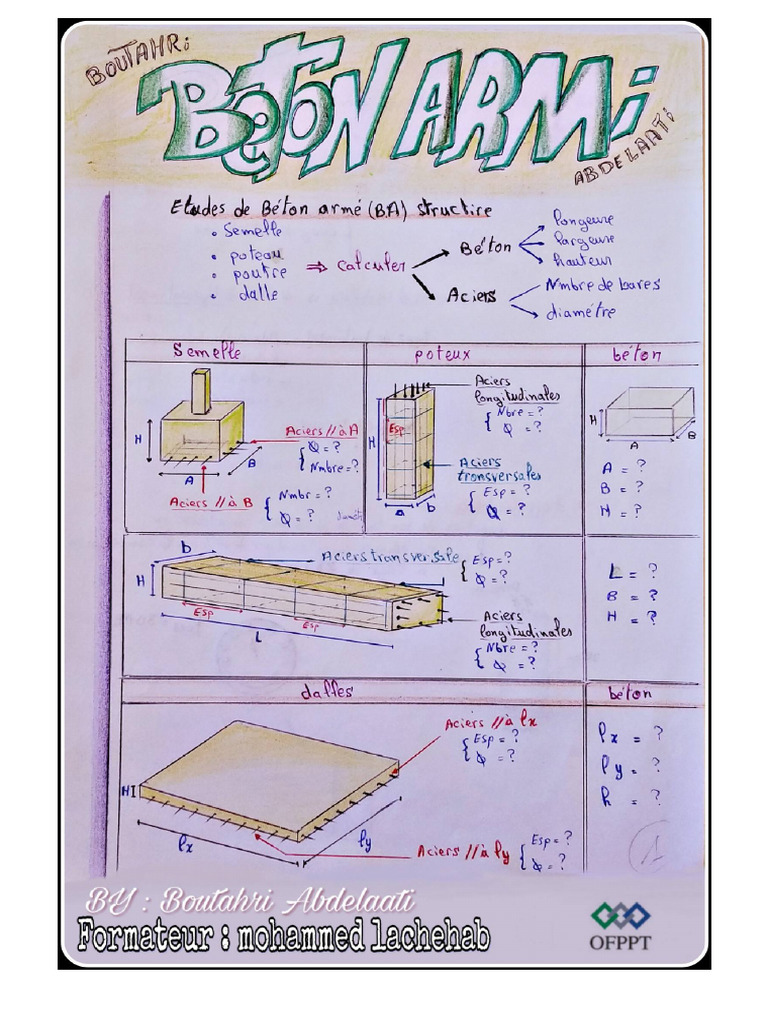 BOUTAHRi
BetON ARMi
ABDELAATi
Etudes de Béton armé (BA) structire
• Semelle
• poteau
• poutre
• dalle
⇒ Calculer
Béton
longeure
largeure
hauteur
Aciers
Nmbre de bares
diamétre
Semelle
poteux
béton
H
A
B
Aciers // à A
Ø = ?
Nmbre = ?
Aciers // à B
Nmbr = ?
Ø = ?
H
Esp
a
b
Aciers
longitudinales
Nbre = ?
Ø = ?
Aciers
transversales
Esp = ?
Ø = ?
H
A
B
A = ?
B = ?
H = ?
b
H
Esp
Esp
L
Aciers transversale
Esp = ?
Ø = ?
Aciers
longitudinales
Nbre = ?
Ø = ?
L = ?
B = ?
H = ?
dalles
béton
H
lx
ly
Aciers // à lx
Esp = ?
Ø = ?
Aciers // à ly
Esp = ?
Ø = ?
lx = ?
ly = ?
h = ?
BY : Boutahri Abdelaati
Formateur : mohammed lachehab
OFPPT